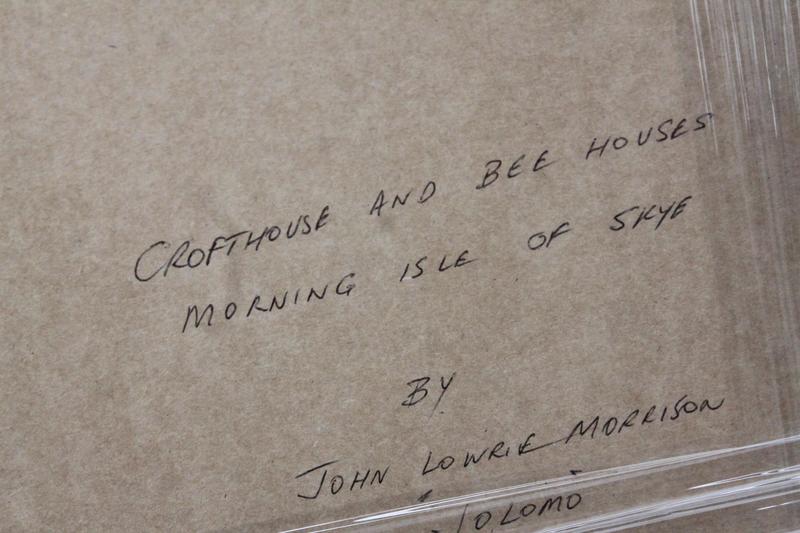 CROFTHOUSE AND BEE HOUSES
MORNING ISLE OF SKYE
BY
JOHN LOWRIE MORRISON
"JOLOMO"